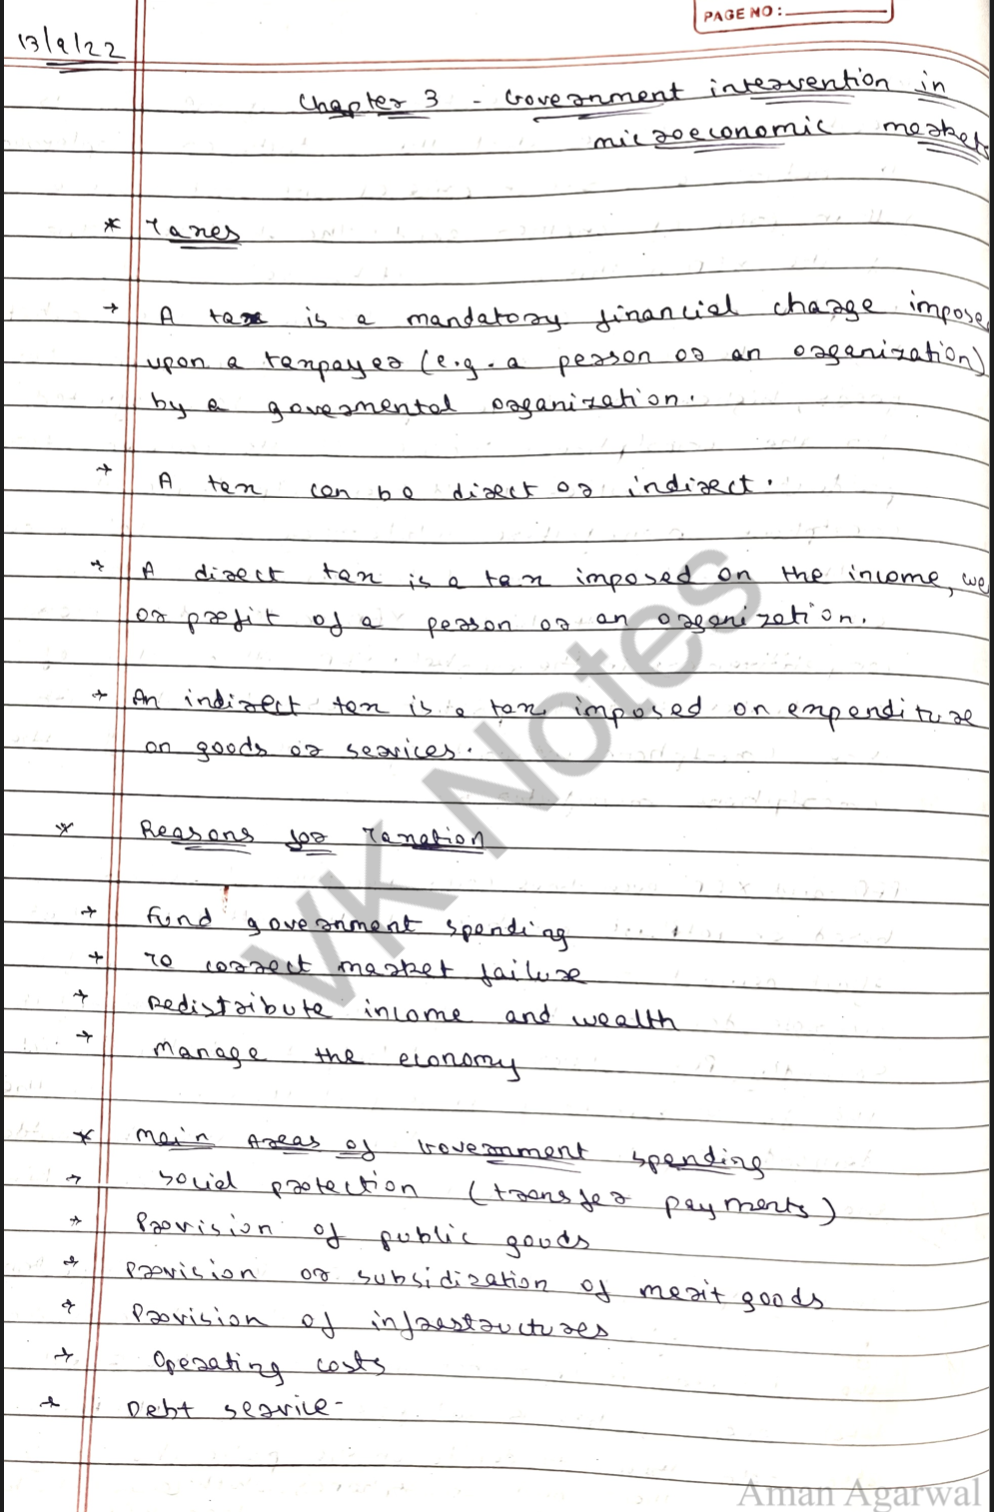 PAGE NO:
13/9/22
Chapter 3 - Government intervention in
microeconomic markets
* Taxes
→ A tax is a mandatory financial charge impose
upon a taxpayer (e.g. a person or an organization)
by a govermental organization.
→ A tax can be direct or indirect.
→ A direct tax is a tax imposed on the income, we
or profit of a person or an organization.
→ An indirect tax is a tax imposed on expenditure
on goods or services.
* Reasons for Taxation
→ Fund government spending
→ To correct market failure
→ Redistribute income and wealth
→ Manage the economy
* Main Areas of Government spending
→ Social protection (transfer payments)
→ Provision of public goods
→ Provision or subsidization of merit goods
→ Provision of infrastructures
→ Operating costs
→ Debt service-
VK Notes
Aman Agarwal